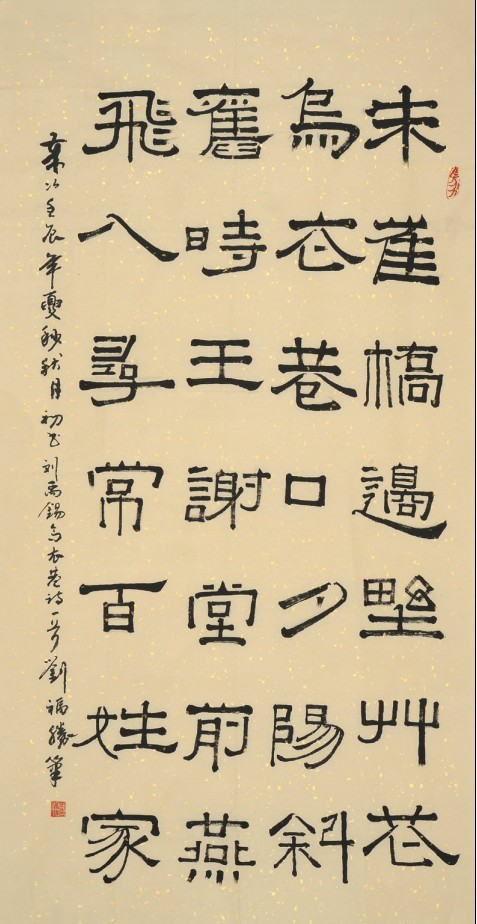 朱雀橋邊野艸花
烏衣巷口夕陽斜
舊時王謝堂前燕
飛入尋常百姓家
歲次壬辰年夏秒秋月初书刘禹錫烏衣巷诗一首劉福勝筆